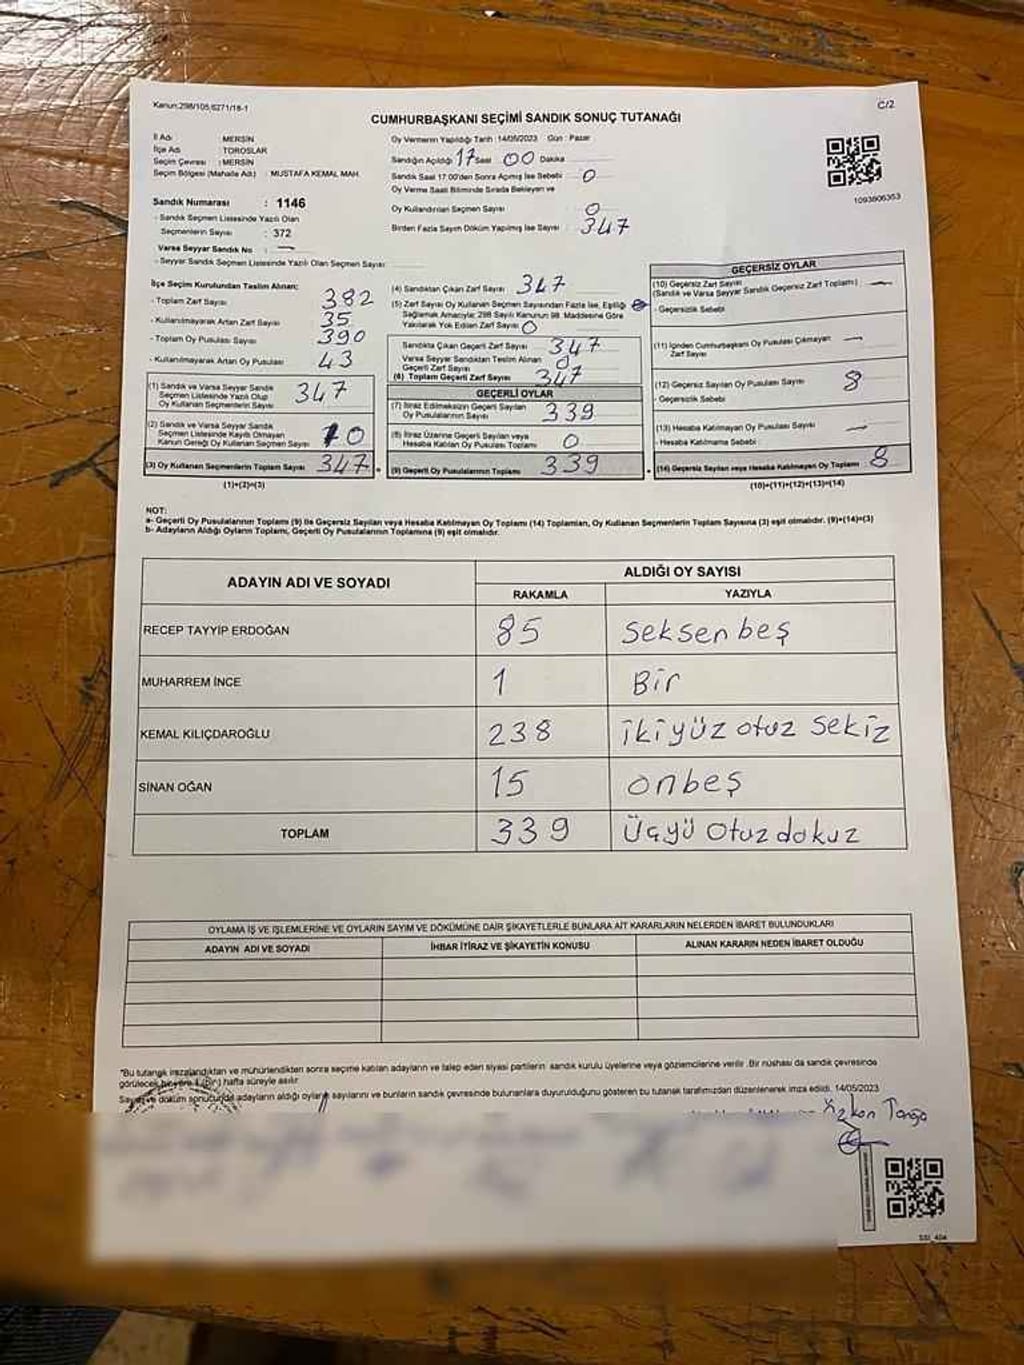 Kanun:298/105,6271/18-1
C/2
CUMHURBAŞKANI SEÇİMİ SANDIK SONUÇ TUTANAĞI
İl Adı : MERSİN
İlçe Adı : TOROSLAR
Seçim Çevresi : MERSİN
Seçim Bölgesi (Mahalle Adı) : MUSTAFA KEMAL MAH.
Oy Vermenin Yapıldığı Tarih :14/05/2023 Gün : Pazar
Sandığın Açıldığı 17 Saat 00 Dakika
Sandık Saat 17:00'den Sonra Açılmış İse Sebebi 0
Oy Verme Saati Bitiminde Sırada Bekleyen ve
Oy Kullandırılan Seçmen Sayısı 0
Birden Fazla Sayım Döküm Yapılmış İse Sayısı 347
1093806353
Sandık Numarası : 1146
- Sandık Seçmen Listesinde Yazılı Olan
Seçmenlerin Sayısı : 372
Varsa Seyyar Sandık No : —
- Seyyar Sandık Seçmen Listesinde Yazılı Olan Seçmen Sayısı
İlçe Seçim Kurulundan Teslim Alınan:
- Toplam Zarf Sayısı 382
- Kullanılmayarak Artan Zarf Sayısı 35
- Toplam Oy Pusulası Sayısı 390
- Kullanılmayarak Artan Oy Pusulası 43
(1) Sandık ve Varsa Seyyar Sandık
Seçmen Listesinde Yazılı Olup
Oy Kullanan Seçmenlerin Sayısı 347
(2) Sandık ve Varsa Seyyar Sandık
Seçmen Listesinde Kayıtlı Olmayan
Kanun Gereği Oy Kullanan Seçmen Sayısı 0
(3) Oy Kullanan Seçmenlerin Toplam Sayısı 347
(1)+(2)=(3)
(4) Sandıktan Çıkan Zarf Sayısı 347
(5) Zarf Sayısı Oy Kullanan Seçmen Sayısından Fazla İse, Eşitliği
Sağlamak Amacıyla; 298 Sayılı Kanunun 98. Maddesine Göre
Yakılarak Yok Edilen Zarf Sayısı 0
Sandıkta Çıkan Geçerli Zarf Sayısı 347
Varsa Seyyar Sandıktan Teslim Alınan
Geçerli Zarf Sayısı 0
(6) Toplam Geçerli Zarf Sayısı 347
GEÇERLİ OYLAR
(7) İtiraz Edilmeksizin Geçerli Sayılan
Oy Pusulalarının Sayısı 339
(8) İtiraz Üzerine Geçerli Sayılan veya
Hesaba Katılan Oy Pusulası Toplamı 0
(9) Geçerli Oy Pusulalarının Toplamı 339
GEÇERSİZ OYLAR
(10) Geçersiz Zarf Sayısı
(Sandık ve Varsa Seyyar Sandık Geçersiz Zarf Toplamı) —
- Geçersizlik Sebebi
(11) İçinden Cumhurbaşkanı Oy Pusulası Çıkmayan
Zarf Sayısı —
(12) Geçersiz Sayılan Oy Pusulası Sayısı 8
- Geçersizlik Sebebi
(13) Hesaba Katılmayan Oy Pusulası Sayısı —
- Hesaba Katılmama Sebebi
(14) Geçersiz Sayılan veya Hesaba Katılmayan Oy Toplamı 8
(10)+(11)+(12)+(13)=(14)
NOT:
a- Geçerli Oy Pusulalarının Toplamı (9) ile Geçersiz Sayılan veya Hesaba Katılmayan Oy Toplamı (14) Toplamları, Oy Kullanan Seçmenlerin Toplam Sayısına (3) eşit olmalıdır. (9)+(14)=(3)
b- Adayların Aldığı Oyların Toplamı, Geçerli Oy Pusulalarının Toplamına (9) eşit olmalıdır.
ADAYIN ADI VE SOYADI
ALDIĞI OY SAYISI
RAKAMLA YAZIYLA
RECEP TAYYİP ERDOĞAN 85 Seksenbeş
MUHARREM İNCE 1 Bir
KEMAL KILIÇDAROĞLU 238 İkiyüz otuz sekiz
SİNAN OĞAN 15 onbeş
TOPLAM 339 Üçyü Otuz dokuz
OYLAMA İŞ VE İŞLEMLERİNE VE OYLARIN SAYIM VE DÖKÜMÜNE DAİR ŞİKAYETLERLE BUNLARA AİT KARARLARIN NELERDEN İBARET BULUNDUKLARI
ADAYIN ADI VE SOYADI İHBAR İTİRAZ VE ŞİKAYETİN KONUSU ALINAN KARARIN NEDEN İBARET OLDUĞU
"Bu tutanak imzalandıktan ve mühürlendikten sonra seçime katılan adayların ve talep eden siyasi partilerin sandık kurulu üyelerine veya gözlemcilerine verilir. Bir nüshası da sandık çevresinde
görülecek bir yere 1 (bir) hafta süreyle asılır.
Sayım ve döküm sonucunda adayların aldığı oyların sayılarını ve bunların sandık çevresinde bulunanlara duyurulduğunu gösteren bu tutanak tarafımızdan düzenlenerek imza edildi. 14/05/2023